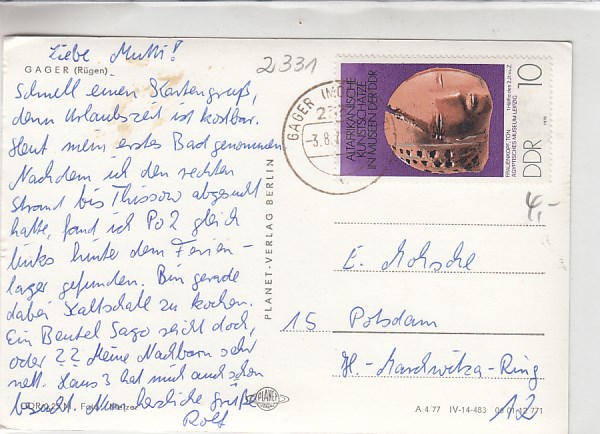 Liebe Mutti!
GAGER (Rügen)
Schnell einen Kartengruß,
denn Urlaubszeit ist kostbar.
Heut mein erstes Bad genommen.
Nachdem ich den rechten
Strand bis Thissow abgesucht
hatte, fand ich Po 2 gleich
links hinter dem Ferien-
lager gefunden. Bin gerade
dabei Kaltschale zu kochen.
Ein Beutel Sago reicht doch,
oder ?? Meine Nachbarn sehr
nett. Haus 3 hat mich auch schon
besucht. Nun herzliche Grüße
Rolf
2331
GAGER
-3.8.
ALTAFRIKANISCHE
KUNSTSCHÄTZE
IN MUSEEN DER DDR
FRAUENKOPF, TON
ÄGYPTISCHES MUSEUM LEIPZIG
10
DDR
4,-
PLANET-VERLAG BERLIN
E.
15 Potsdam
H.-Marchwitza-Ring
12
PLANET
A 4/77 IV-14-483 09 01 12 771